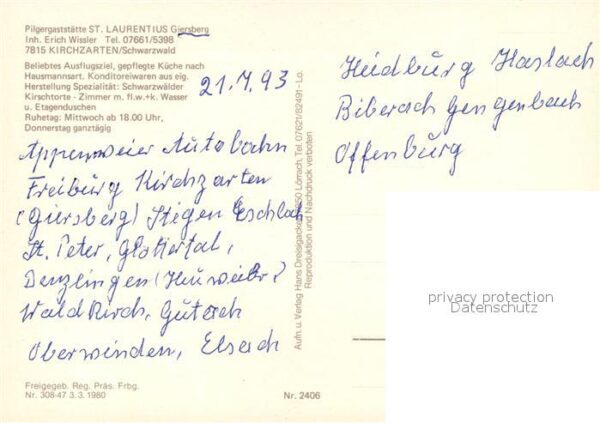 Pilgergaststätte ST. LAURENTIUS Giersberg
Inh. Erich Wissler Tel. 07661/5398
7815 KIRCHZARTEN/Schwarzwald
Beliebtes Ausflugsziel, gepflegte Küche nach
Hausmannsart. Konditoreiwaren aus eig.
Herstellung Spezialität: Schwarzwälder
Kirschtorte - Zimmer m. fl.w.+k. Wasser
u. Etagenduschen
Ruhetag: Mittwoch ab 18.00 Uhr,
Donnerstag ganztägig
21.7.93
Appenweier Autobahn
Freiburg Kirchzarten
(Giersberg) Stegen Eschbach
St. Peter, Glottertal,
Denzlingen (Heuweiler?
Waldkirch, Gutach
Oberwinden, Elzach
Freigegeb. Reg. Präs. Frbg.
Nr. 308-47 3.3.1980
Nr. 2406
Aufn. u. Verlag Hans Dreisigacker, Lörrach, Tel. 07621/82491 - Lo.
Reproduktion und Nachdruck verboten
Heidburg Haslach
Biberach Gengenbach
Offenburg
privacy protection
Datenschutz